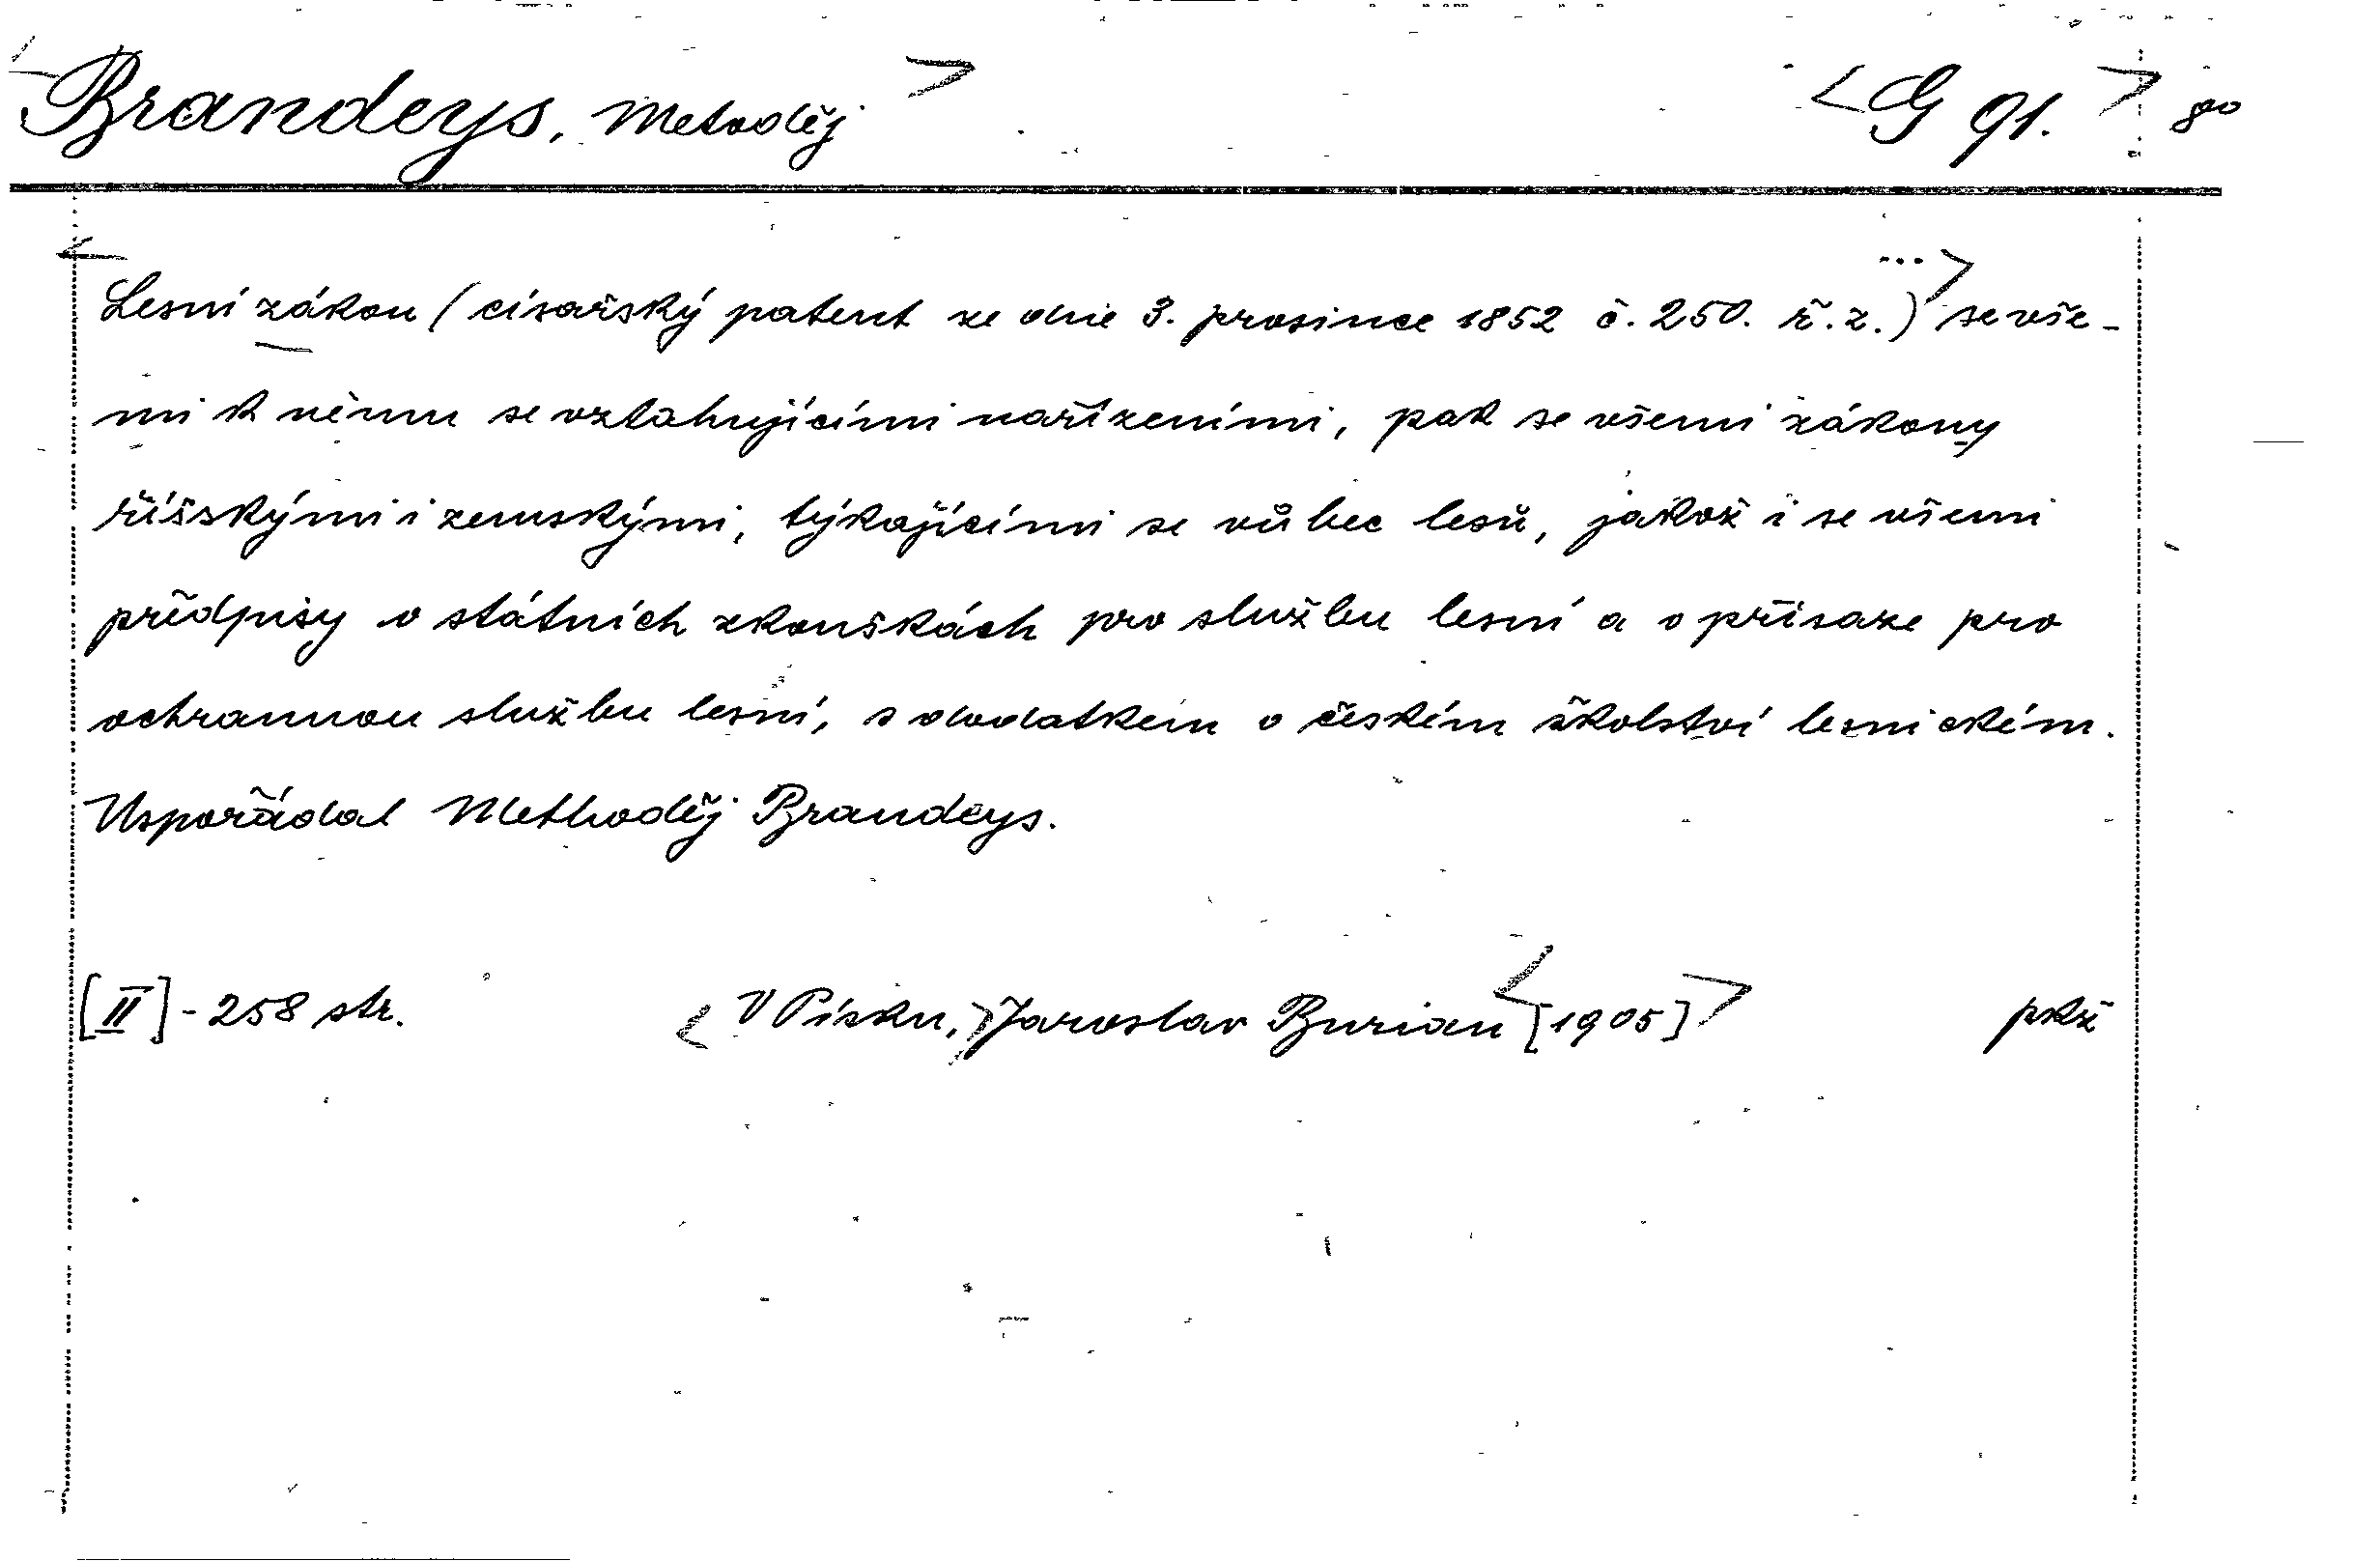 <Brandeys, Metoděj> <G 91.> 8°
<Lesní zákon (císařský patent ze dne 3. prosince 1852 č. 250. ř. z.)...> se vše-
mi k němu se vztahujícími nařízeními, pak se všemi zákony
říšskými i zemskými, týkajícími se vůbec lesů, jakož i se všemi
předpisy o státních zkouškách pro službu lesní a o přísaze pro
ochrannou službu lesní, s dodatkem o českém školství lesnickém.
Uspořádal Methoděj Brandeys.
[II] - 258 str. <V Písku,> Jaroslav Burian <[1905]> pkž